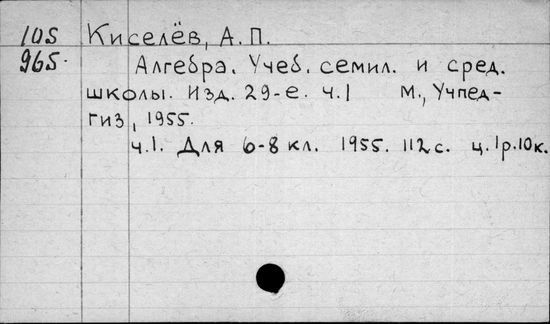 105 Киселёв, А. П.
965. Алгебра. Учеб. семил. и сред.
школы. Изд. 29-е. ч.1 М., Учпед-
гиз, 1955.
ч.1. Для 6-8 кл. 1955. 112 с. ц. 1р.10к.